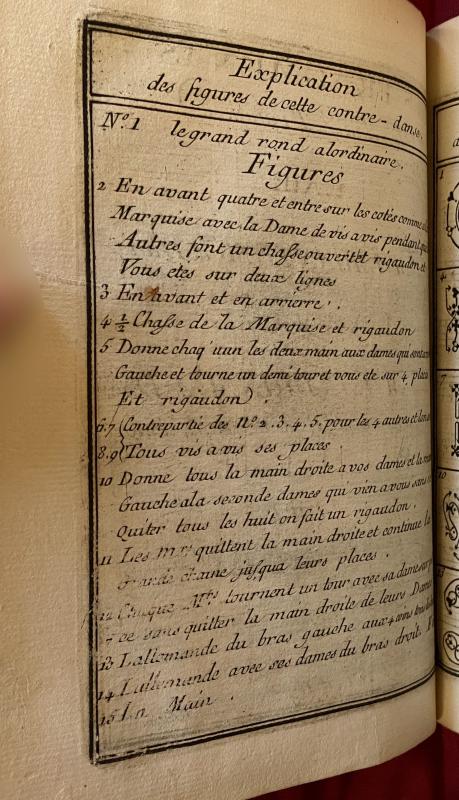 Explication
des figures de cette contre-danse.
N.º 1 le grand rond alordinaire.
Figures
2 En avant quatre et entre sur les cotés comme
Marquise avec la Dame de vis a vis pendant que
Autres font un chasse ouvert et rigaudon et
Vous etes sur deux lignes
3 En avant et en arrierre.
4 ½ Chasse de la Marquise et rigaudon
5 Donne chaq'uun les deux main aux dames qui sont
Gauche et tourne un demi tour et vous ete sur 4 place
Et rigaudon.
6.7 Contrepartie des Nº 2.3.4.5. pour les 4 autres et
8.9 Tous vis a vis ses places.
10 Donne tous la main droite a vos dames et la
Gauche ala seconde dames qui vien a vous sans
Quiter tous les huit on fait un rigaudon.
11 Les Mrs quittent la main droite et continue la
Grande chaine jusqua leurs places.
12 Chaque Mrs tournent un tour avec sa dame sur
sans quitter la main droite de leurs Dames
13 Lallemande du bras gauche aux 4 coins
14 Lallemande avec ses dames du bras droit.
15 La Main.
1
4
7
10
13